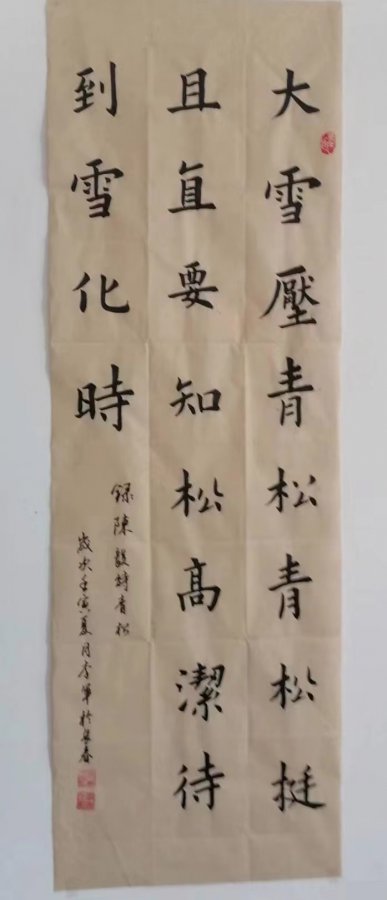 大雪壓青松青松挺
且直要知松高潔待
到雪化時
錄陳毅詩青松
歲次壬寅夏月李軍於長春